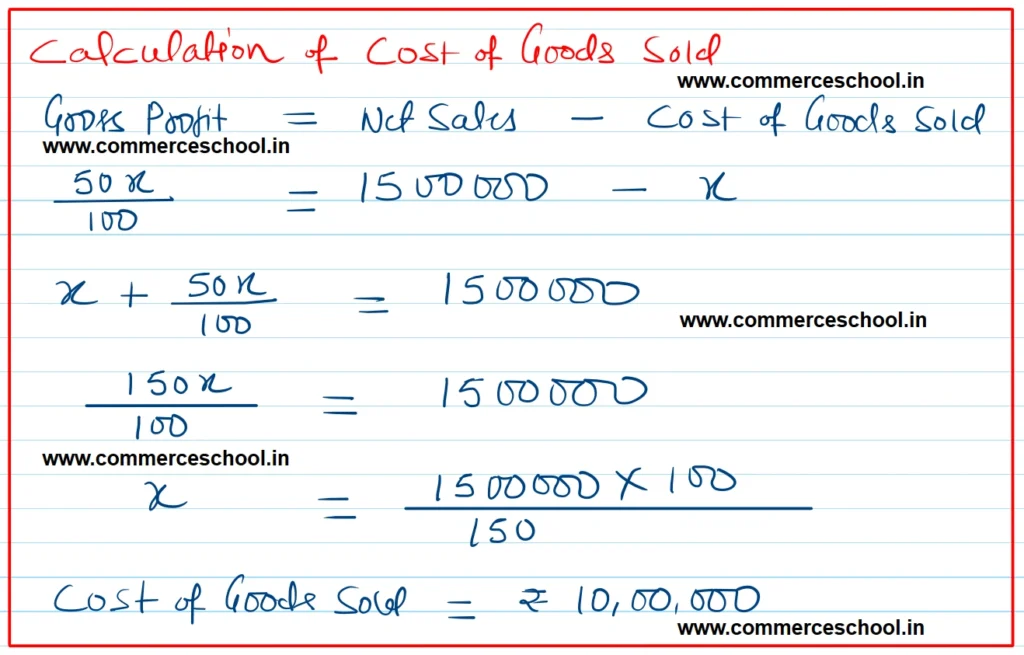 Calculation of Cost of Goods Sold
www.commerceschool.in
Gross Profit = Net Sales - Cost of Goods Sold
www.commerceschool.in
50x/100 = 1500000 - x
x + 50x/100 = 1500000
www.commerceschool.in
150x/100 = 1500000
www.commerceschool.in
x = 1500000 × 100/150
Cost of Goods Sold = ₹ 10,00,000
www.commerceschool.in